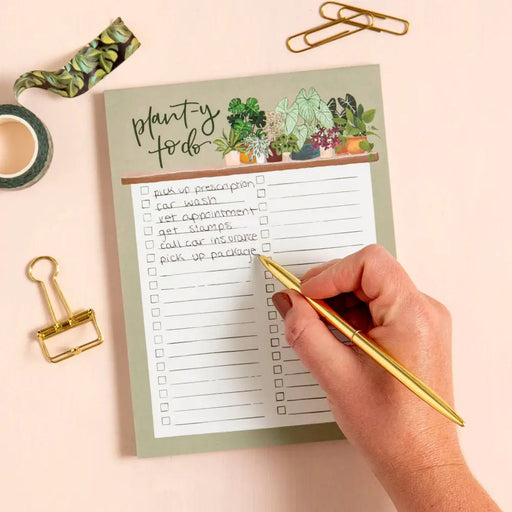 plant-y
to do
pick up prescription
car wash
vet appointment
get stamps
call car insurance
pick up package